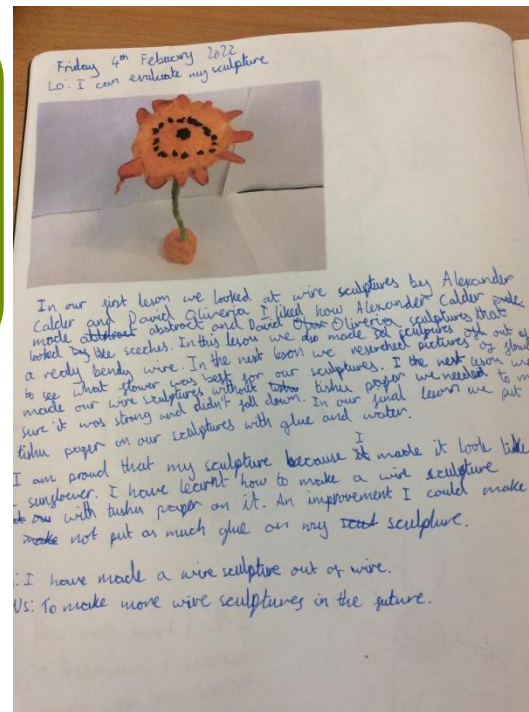 Friday 4th Febuary 2022
Lo: I can evaluate my sculpture
In our first lesson we looked at wire sculptures by Alexander
Calder and David Oliveria I liked how Alexander Calder made
made abstract abstract and David Oliveria sculptures that
looked like sceches. In this lesson we also made sculptures out of
a really bendy wire. In the next lesson we reserched pictures of
to see what flower was best for our sculptures. I the next lesson we
made our wire sculptures without tishu paper we needed to
sure it was strong and didn't fall down. In our final lesson we put
tishu paper on our sculptures with glue and water.
I am proud that my sculpture because I made it look like
sunflower. I have learnt how to make a wire sculpture
with tishu paper on it. An improvement I could make
make not put as much glue on my sculpture.
: I have made a wire sculpture out of wire.
Ns: To make more wire sculptures in the future.